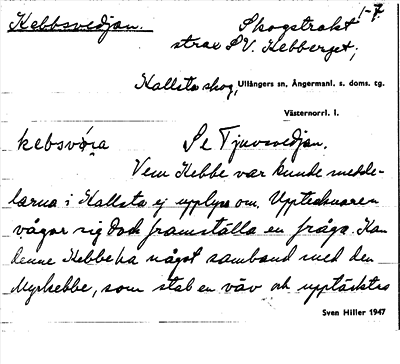 Kebbsvedjan.
Skogstrakt 1-7.
strax S.V. Kebberget;
Kallsta skog, Ullångers sn, Ångermanl. s. doms. tg.
Västernorrl. l.
kebsvöɩa Se Tjuvsvedjan.
Vem Kebbe var kunde medde-
larna i Kallsta ej upplysa om. Upptecknaren
vågar sig dock framställa en fråga. Kan
denne Kebbe ha något samband med den
Myrkebbe, som stal en väv och upptäcktes
Sven Hiller 1947